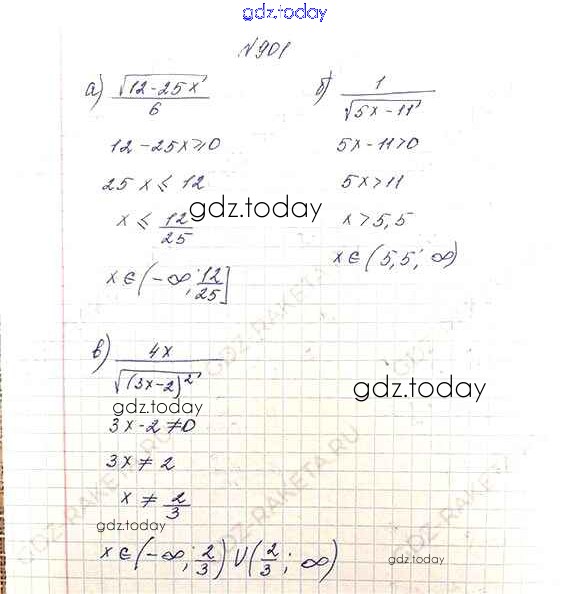 gdz.today
№901
а) √(12-25x) / 6
12-25x⩾0
25x ⩽ 12
x ⩽ 12/25
x∈(-∞; 12/25]
б) 1 / √(5x-11)
5x-11>0
5x>11
x>5,5
x∈(5,5; ∞)
gdz.today
в) 4x / √((3x-2)²)
gdz.today
3x-2≠0
3x≠2
x ≠ 2/3
gdz.today
x∈(-∞; 2/3) U (2/3; ∞)
gdz.today
gdz.today
GDZ-RAKETA.RU
GDZ-RAKETA.RU